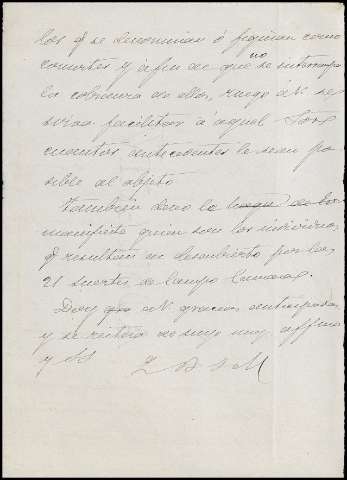 los q se denominan ó figuran como
comunes y a fin de que no se interrumpa
la cobranza de ellos, ruego á V se
sirva facilitar á aquel Sor
cuantos antecedentes le sean po-
sible al objeto
También deseo le haga
manifieste quien son los individuos
q resultan en descubierto por las
21 suertes de Campo Comunal.
Doy á V gracias anticipadas
y se reitera de suyo muy affmo
y SS